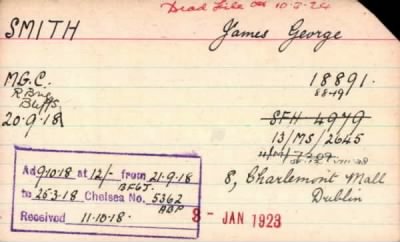 Dead File 10-3-24
SMITH James George
M.G.C. 18891.
88-19
R. Bde
Bliffs
20-9-18
SFH 4979
13/MS/2645
Ad 9-10-18 at 12/- from 21-9-18
to 25-3-18 Chelsea No. 5362
Received 11.10.18.
8- JAN 1923
8, Charlemont Mall
Dublin